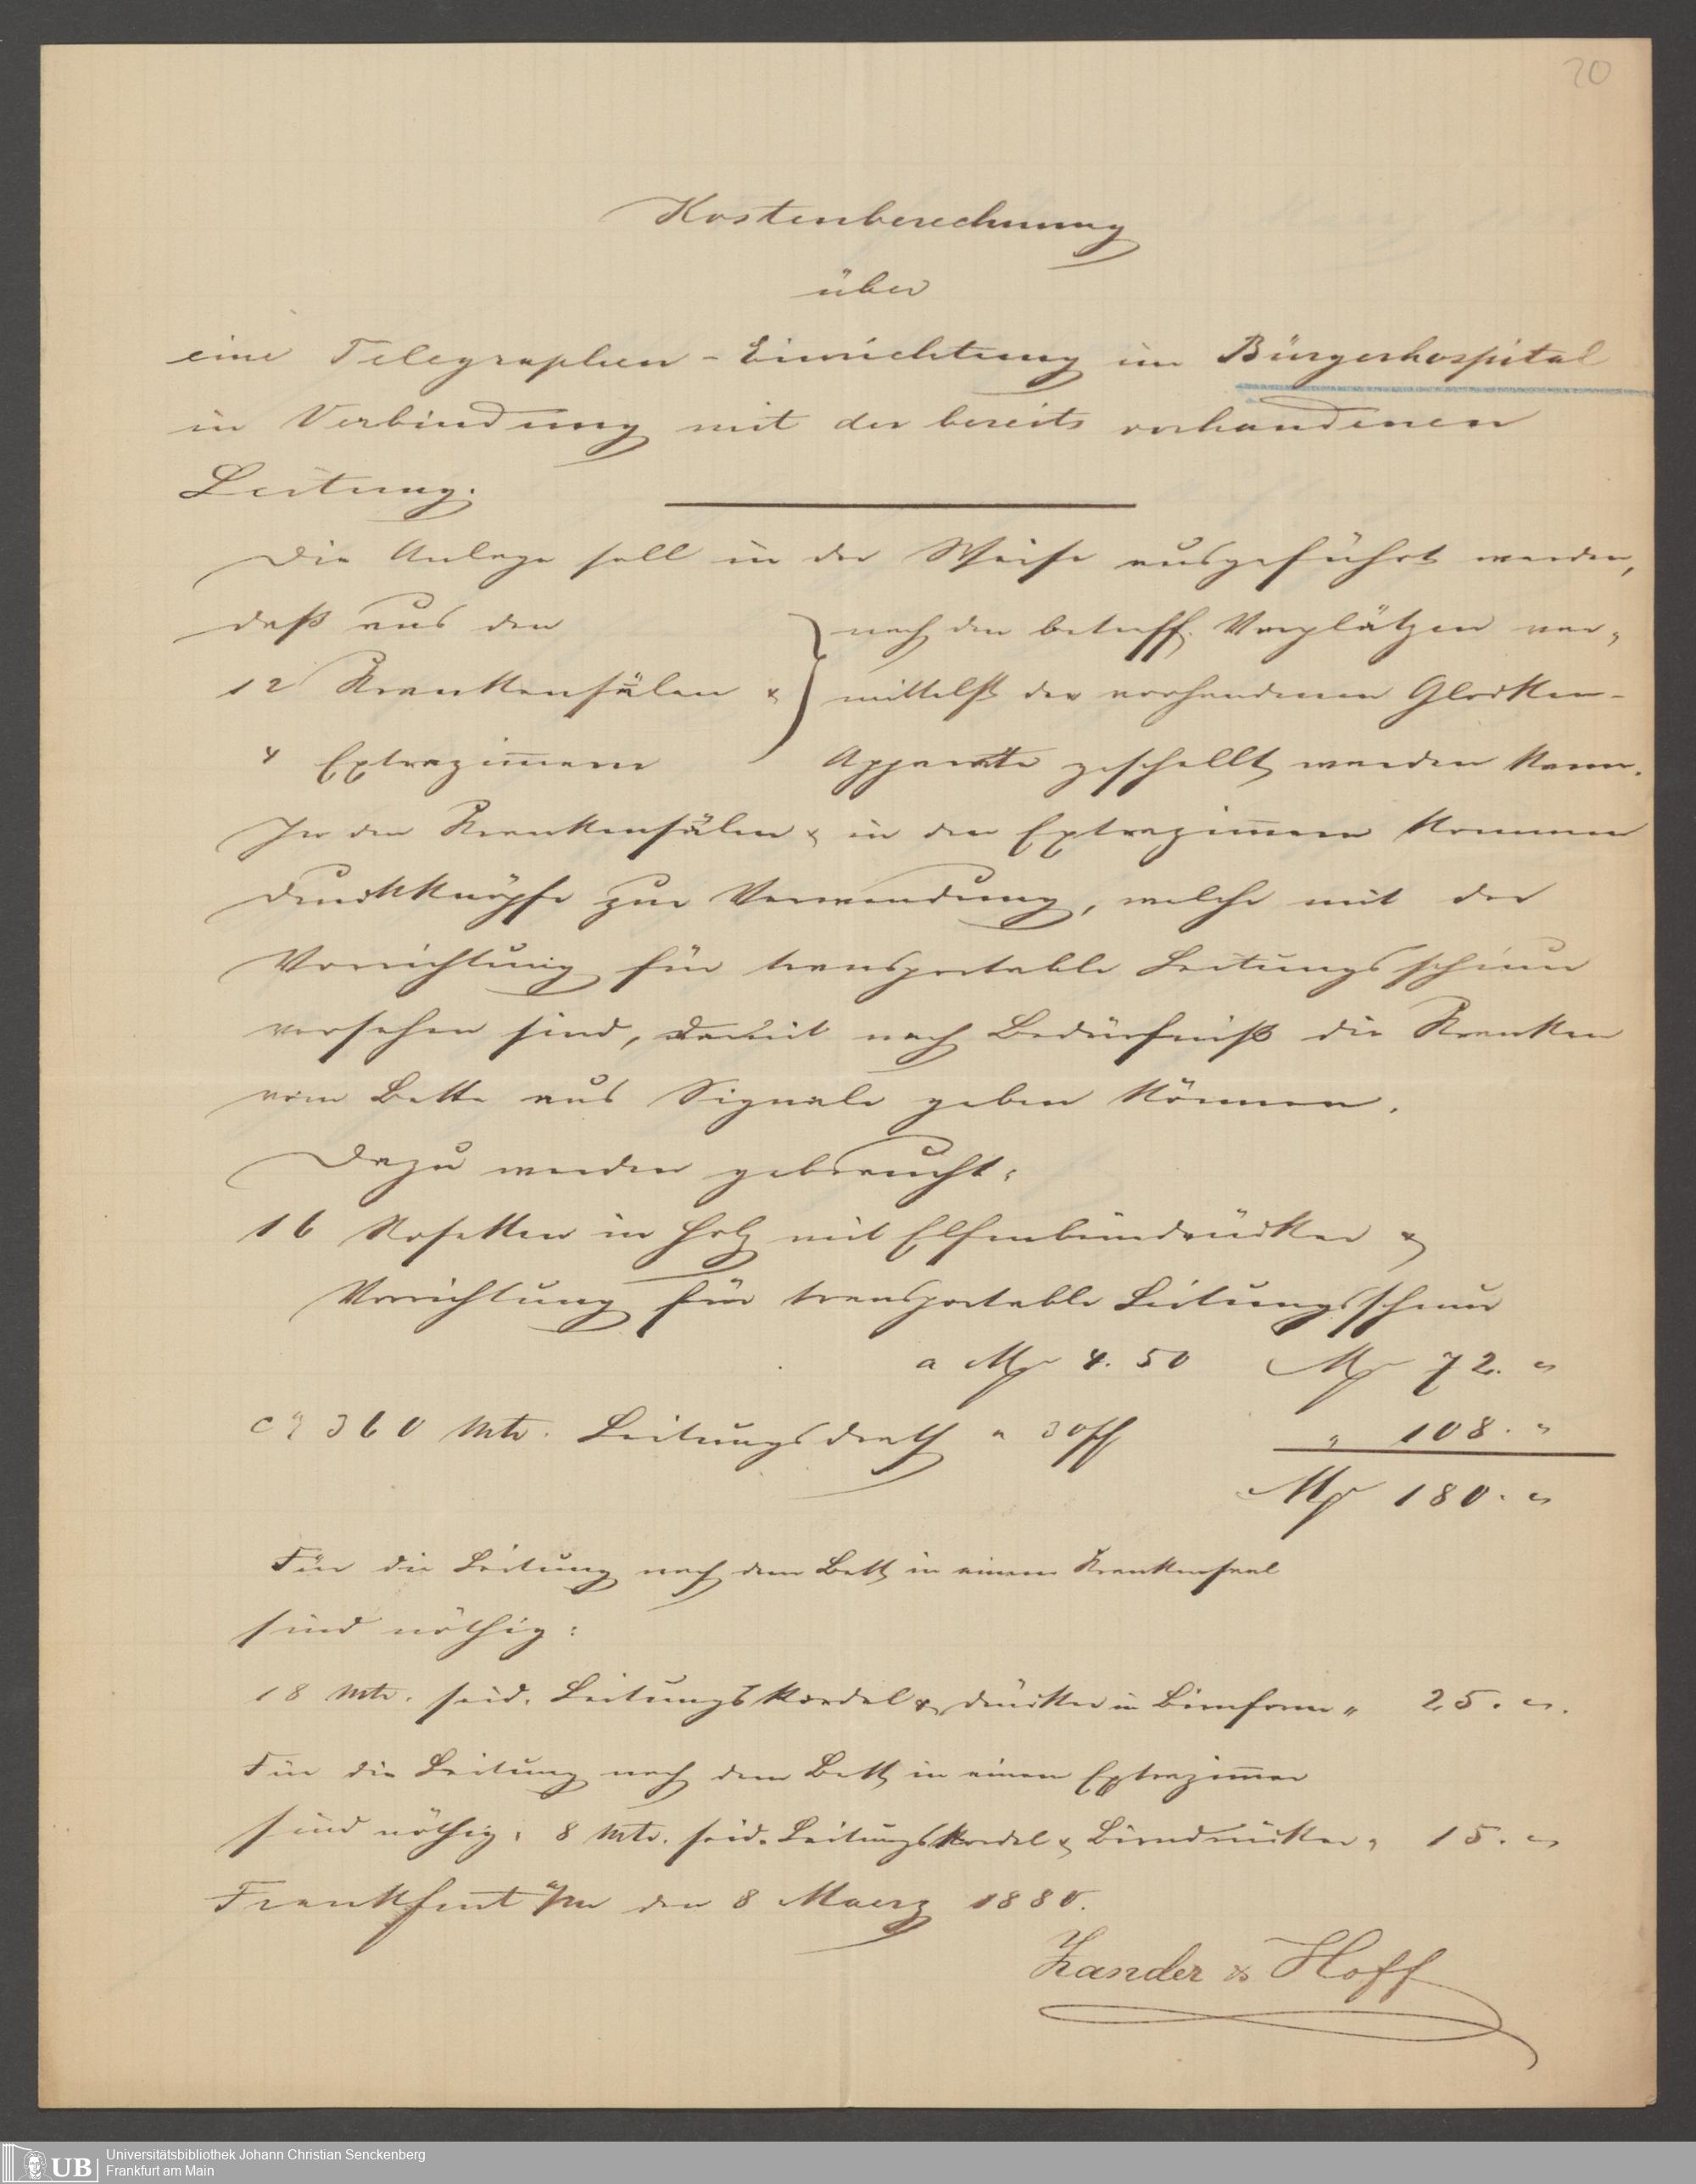 20
Kostenberechnung
über
eine Telegraphen-Einrichtung im Bürgerhospital
in Verbindung mit der bereits vorhandenen
Leitung.
Die Anlage soll in der Weise ausgeführt werden,
daß aus den
12 Krankensälen &
4 Extrazim̅ern
nach den betreff. Vorplätzen ver-
mittelst der vorhandenen Glocken-
Apparate geschellt werden kann.
In den Krankensälen & in den Extrazim̅ern kommen
Druckknöpfe zur Verwendung, welche mit der
Vorrichtung für transportable Leitungsschnur
versehen sind, damit nach Bedürfniß die Kranken
vom Bette aus Signale geben können.
Dazu werden gebraucht:
16 Rosetten in Holz mit Elfenbeindrücker &
Vorrichtung für transportable Leitungsschnur
a M 4.50 M 72. "
ca 360 Mtr. Leitungsdrath a 30 ₰ " 108. "
M 180. "
Für die Leitung nach dem Bett in einem Krankensaal
sind nöthig:
18 Mtr. seid. Leitungskordel & Drücker in Birnform " 25. ".
Für die Leitung nach dem Bett in einem Extrazim̅er
sind nöthig: 8 Mtr. seid. Leitungskordel & Birndrücker " 15. "
Frankfurt a/M den 8 Maerz 1880.
Zander & Hoff
UB Universitätsbibliothek Johann Christian Senckenberg
Frankfurt am Main